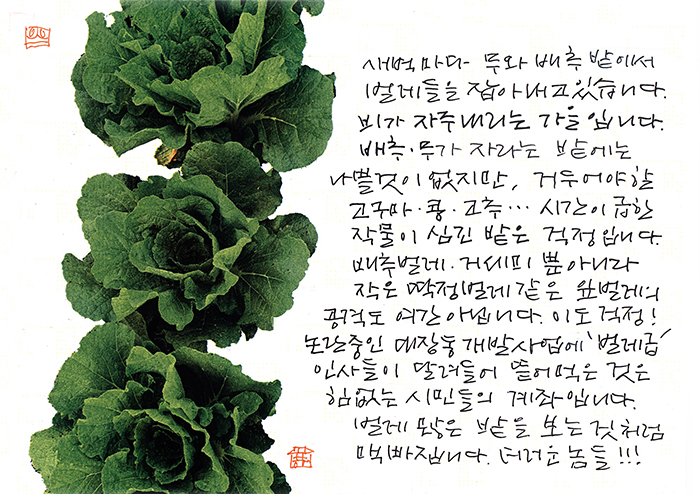 새벽마다 무와 배추 밭에서
벌레들을 잡아내고있습니다.
비가 자주내리는 가을입니다.
배추·무가 자라는 밭에는
나쁠것이 없지만, 거두어야할
고구마·콩·고추··· 시간이 급한
작물이 심긴 밭은 걱정입니다.
배추벌레·거세미 뿐아니라
작은 딱정벌레 같은 잎벌레의
공격도 여간 아닙니다. 이도 걱정!
논란중인 대장동 개발사업에 '벌레급'
인사들이 달려들어 뜯어먹은 것은
힘없는 시민들의 계좌입니다.
벌레 많은 밭을 보는 것처럼
맥빠집니다. 더러운 놈들!!!